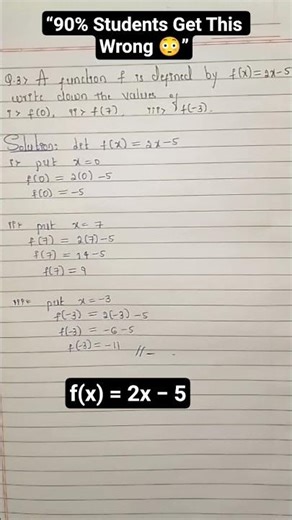 “90% Students Get This
Wrong 😳”
Q.3> A function f is defined by f(x)=2x-5
write down the values of
i> f(0), ii> f(7), iii> f(-3).
Solution: let f(x) = 2x-5
i> put x=0
f(0) = 2(0) -5
f(0) = -5
ii> put x= 7
f(7) = 2(7)-5
f(7) = 14-5
f(7) = 9
iii> put x=-3
f(-3) = 2(-3) -5
f(-3) = -6-5
f(-3) = -11 //
f(x) = 2x − 5